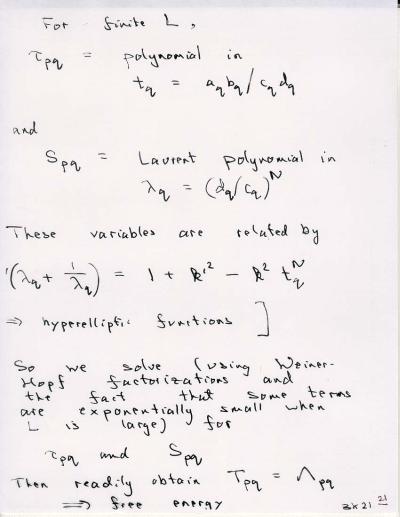 For finite L,
τpq = polynomial in
tq = aq bq / cq dq
and
Spq = Laurent polynomial in
λq = (dq/cq)^N
These variables are related by
k'(λq + 1/λq) = 1 + k'^2 − k^2 tq^N
⇒ hyperelliptic functions ]
So we solve (using Weiner-
Hopf factorizations and
the fact that some terms
are exponentially small when
L is large) for
τpq and Spq
Then readily obtain Tpq = Λpq
⇒ free energy
21